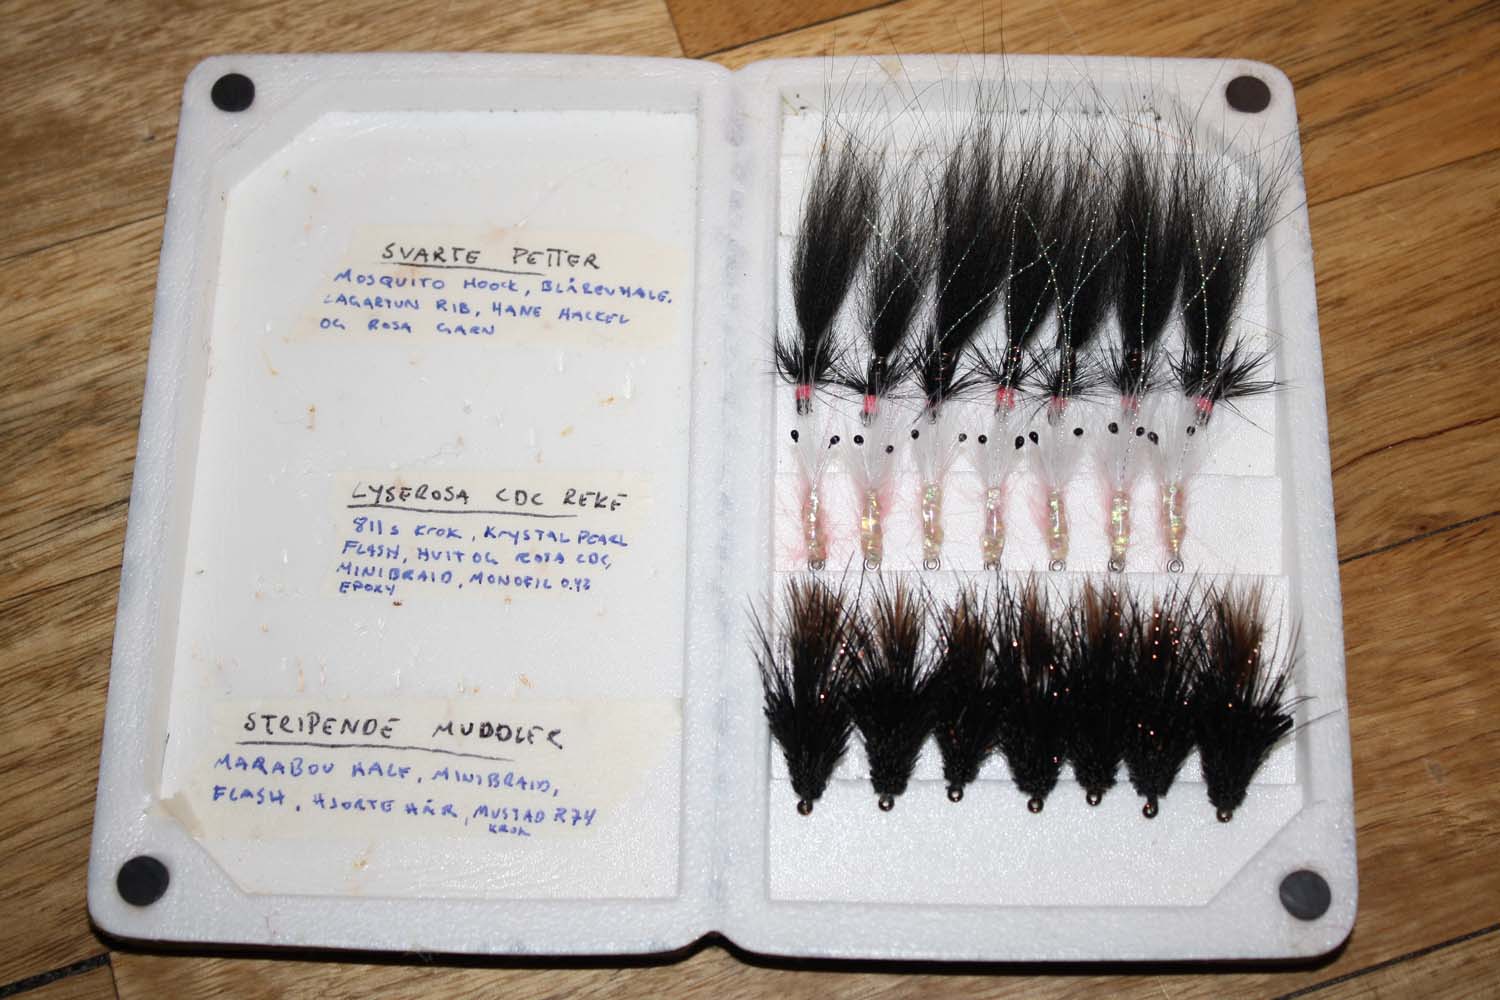 SVARTE PETTER
MOSQUITO HOOCK, BLÅREVHALE,
LAGARTUN RIB, HANE HACKEL
OG ROSA GARN
LYSEROSA CDC REKE
811s KROK, KRYSTAL PEARL
FLASH, HVIT OG ROSA CDC,
MINIBRAID, MONOFIL 0.43
EPOXY
STRIPENDE MUDDLER
MARABOU HALE, MINIBRAID,
FLASH, HJORTE HÅR, MUSTAD R74
KROK